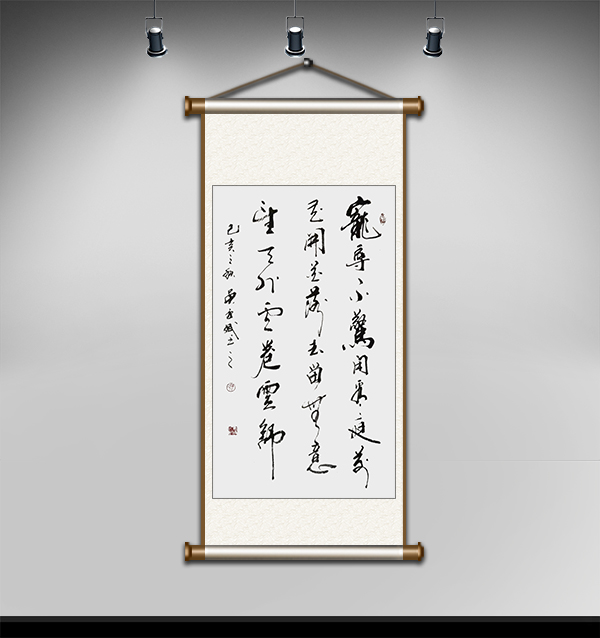 寵辱不驚閑看庭前
花開花落去留無意
望天外雲卷雲舒
己亥之秋